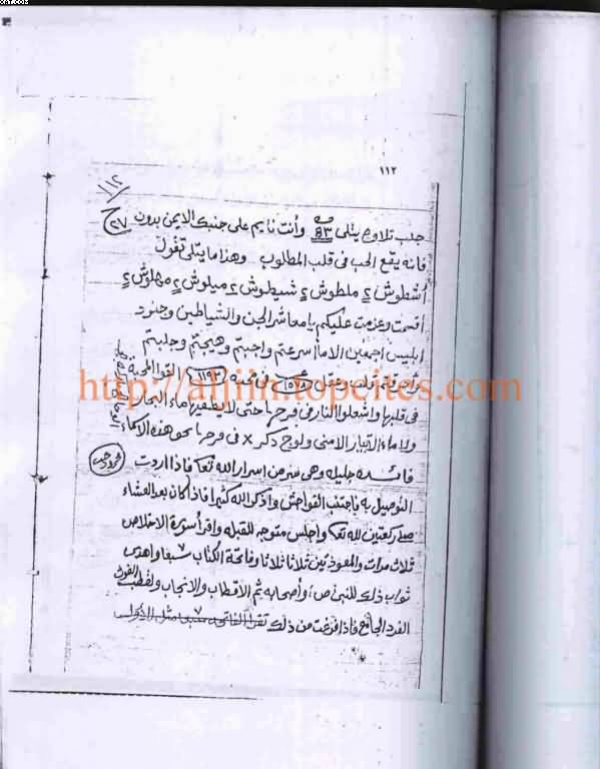 ١١٢
١١٢
٢٧
جلب تلاوه يتلى ٨٣ وأنت نايم على جنبك الايمن بدون
فانه يقع الحب فى قلب المطلوب وهذا ما يتلى تقول
أشطوش ٢ ملطوش ٢ شيطوش ٢ ميلوش ٢ مهلوش ٢
أقسمت وعزمت عليكم يا معاشر الجن والشياطين وجنود
ابليس اجمعين الا ما أسرعتم واجبتم وهيجتم وجلبتم
قلب وعقل فى محبة القوا المحبة
فى قلبها واشعلوا النار فى حتى لا يطفيها ماء البحار
ولا ماء الا فى بحق هذه الاسماء
فائده جليله وهى سر من اسرار الله تعا فاذا اردت
التوصيل به فاجتنب الفواحش واذكر الله كثيرا فاذا كان بعد العشاء
صلى ركعتين لله تعا واجلس متوجه للقبله واقرأ سورة الاخلاص
ثلاث مرات والمعوذتين ثلاثا ثلاثا وفاتحة الكتاب سبعا واهدى
ثواب ذلك للنبى ص وأصحابه ثم الاقطاب والانجاب ولقطب الغوث
الفرد الجامع فاذا فرغت من ذلك تقرأ الفاتحه سبعا مثل الاول
http://aljiin.topcities.com